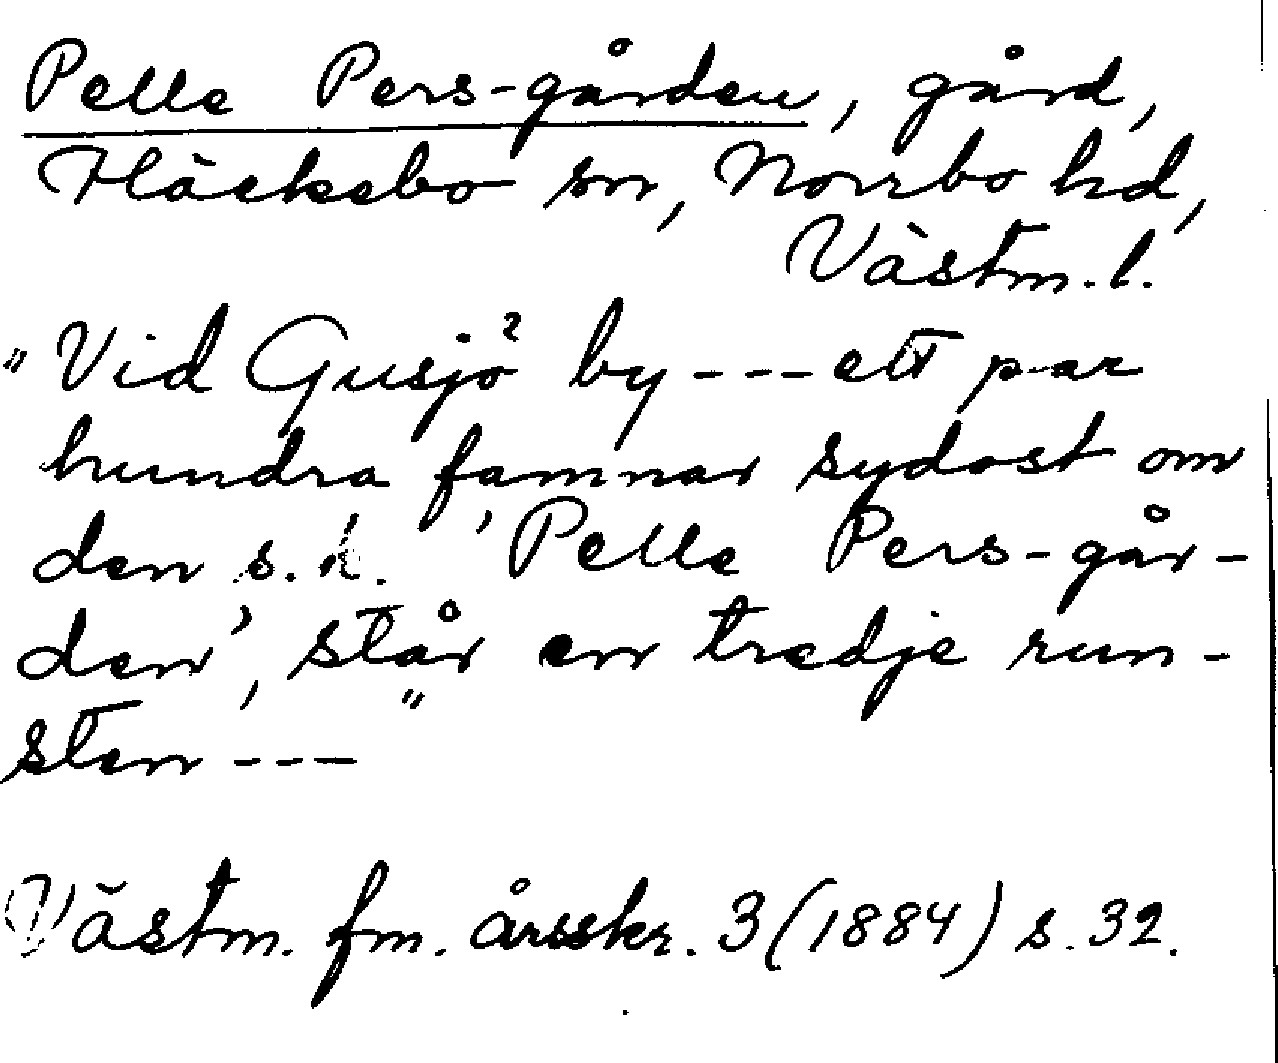 Pelle Pers-gården, gård,
Fläckebo sn, Norrbo hd,
Västm. l.
"Vid Gusjö by --- ett par
hundra famnar sydost om
den s.k. 'Pelle Pers-går-
den', står en tredje run-
sten ---"
Västm. fm. årsskr. 3 (1884) s. 32.